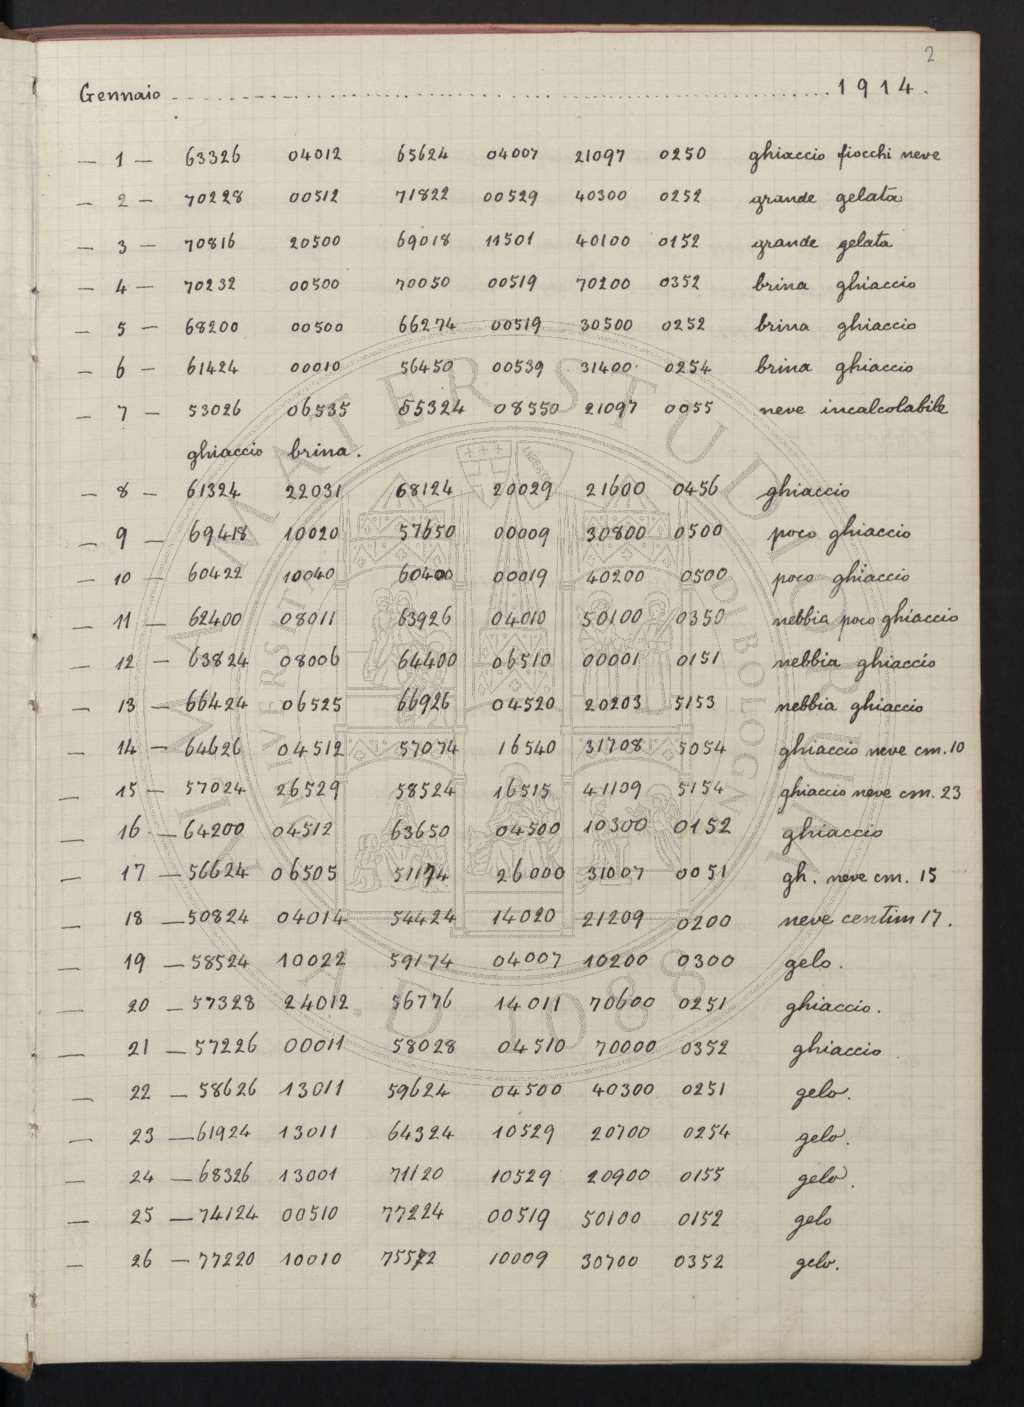 2
Gennaio ........................ 1914.
— 1 — 63326 04012 65624 04007 21097 0250 ghiaccio fiocchi neve
— 2 — 70228 00512 71822 00529 40300 0252 grande gelata
— 3 — 70816 20500 69018 11501 40100 0152 grande gelata
— 4 — 70232 00500 70050 00519 70200 0352 brina ghiaccio
— 5 — 68200 00500 66274 00519 30500 0252 brina ghiaccio
— 6 — 61424 00010 56450 00539 31400 0254 brina ghiaccio
— 7 — 53026 06535 55324 08550 21097 0055 neve incalcolabile
ghiaccio brina.
— 8 — 61324 22031 68124 20029 21600 0456 ghiaccio
— 9 — 69418 10020 57650 00009 30800 0500 poco ghiaccio
— 10 — 60422 10040 60400 00019 40200 0500 poco ghiaccio
— 11 — 62400 08011 63926 04010 50100 0350 nebbia poco ghiaccio
— 12 — 63824 08006 64400 06510 00001 0151 nebbia ghiaccio
— 13 — 66424 06525 66926 04520 20203 5153 nebbia ghiaccio
— 14 — 64626 04512 57074 16540 31708 5054 ghiaccio neve cm. 10
— 15 — 57024 26529 58524 16515 41109 5154 ghiaccio neve cm. 23
— 16 — 64200 04512 63650 04500 10300 0152 ghiaccio
— 17 — 56624 06505 51174 26000 31007 0051 gh. neve cm. 15
— 18 — 50824 04014 54424 14020 21209 0200 neve centim 17.
— 19 — 58524 10022 59174 04007 10200 0300 gelo.
— 20 — 57328 24012 56776 14011 70600 0251 ghiaccio.
— 21 — 57226 00011 58028 04510 70000 0352 ghiaccio
— 22 — 58626 13011 59624 04500 40300 0251 gelo.
— 23 — 61924 13011 64324 10529 20700 0254 gelo.
— 24 — 68326 13001 71120 10529 20900 0155 gelo.
— 25 — 74124 00510 77224 00519 50100 0152 gelo
— 26 — 77220 10010 75572 10009 30700 0352 gelo.
ALMA MATER STUDIORUM
UNIVERSITÀ DI BOLOGNA
A.D. 1088